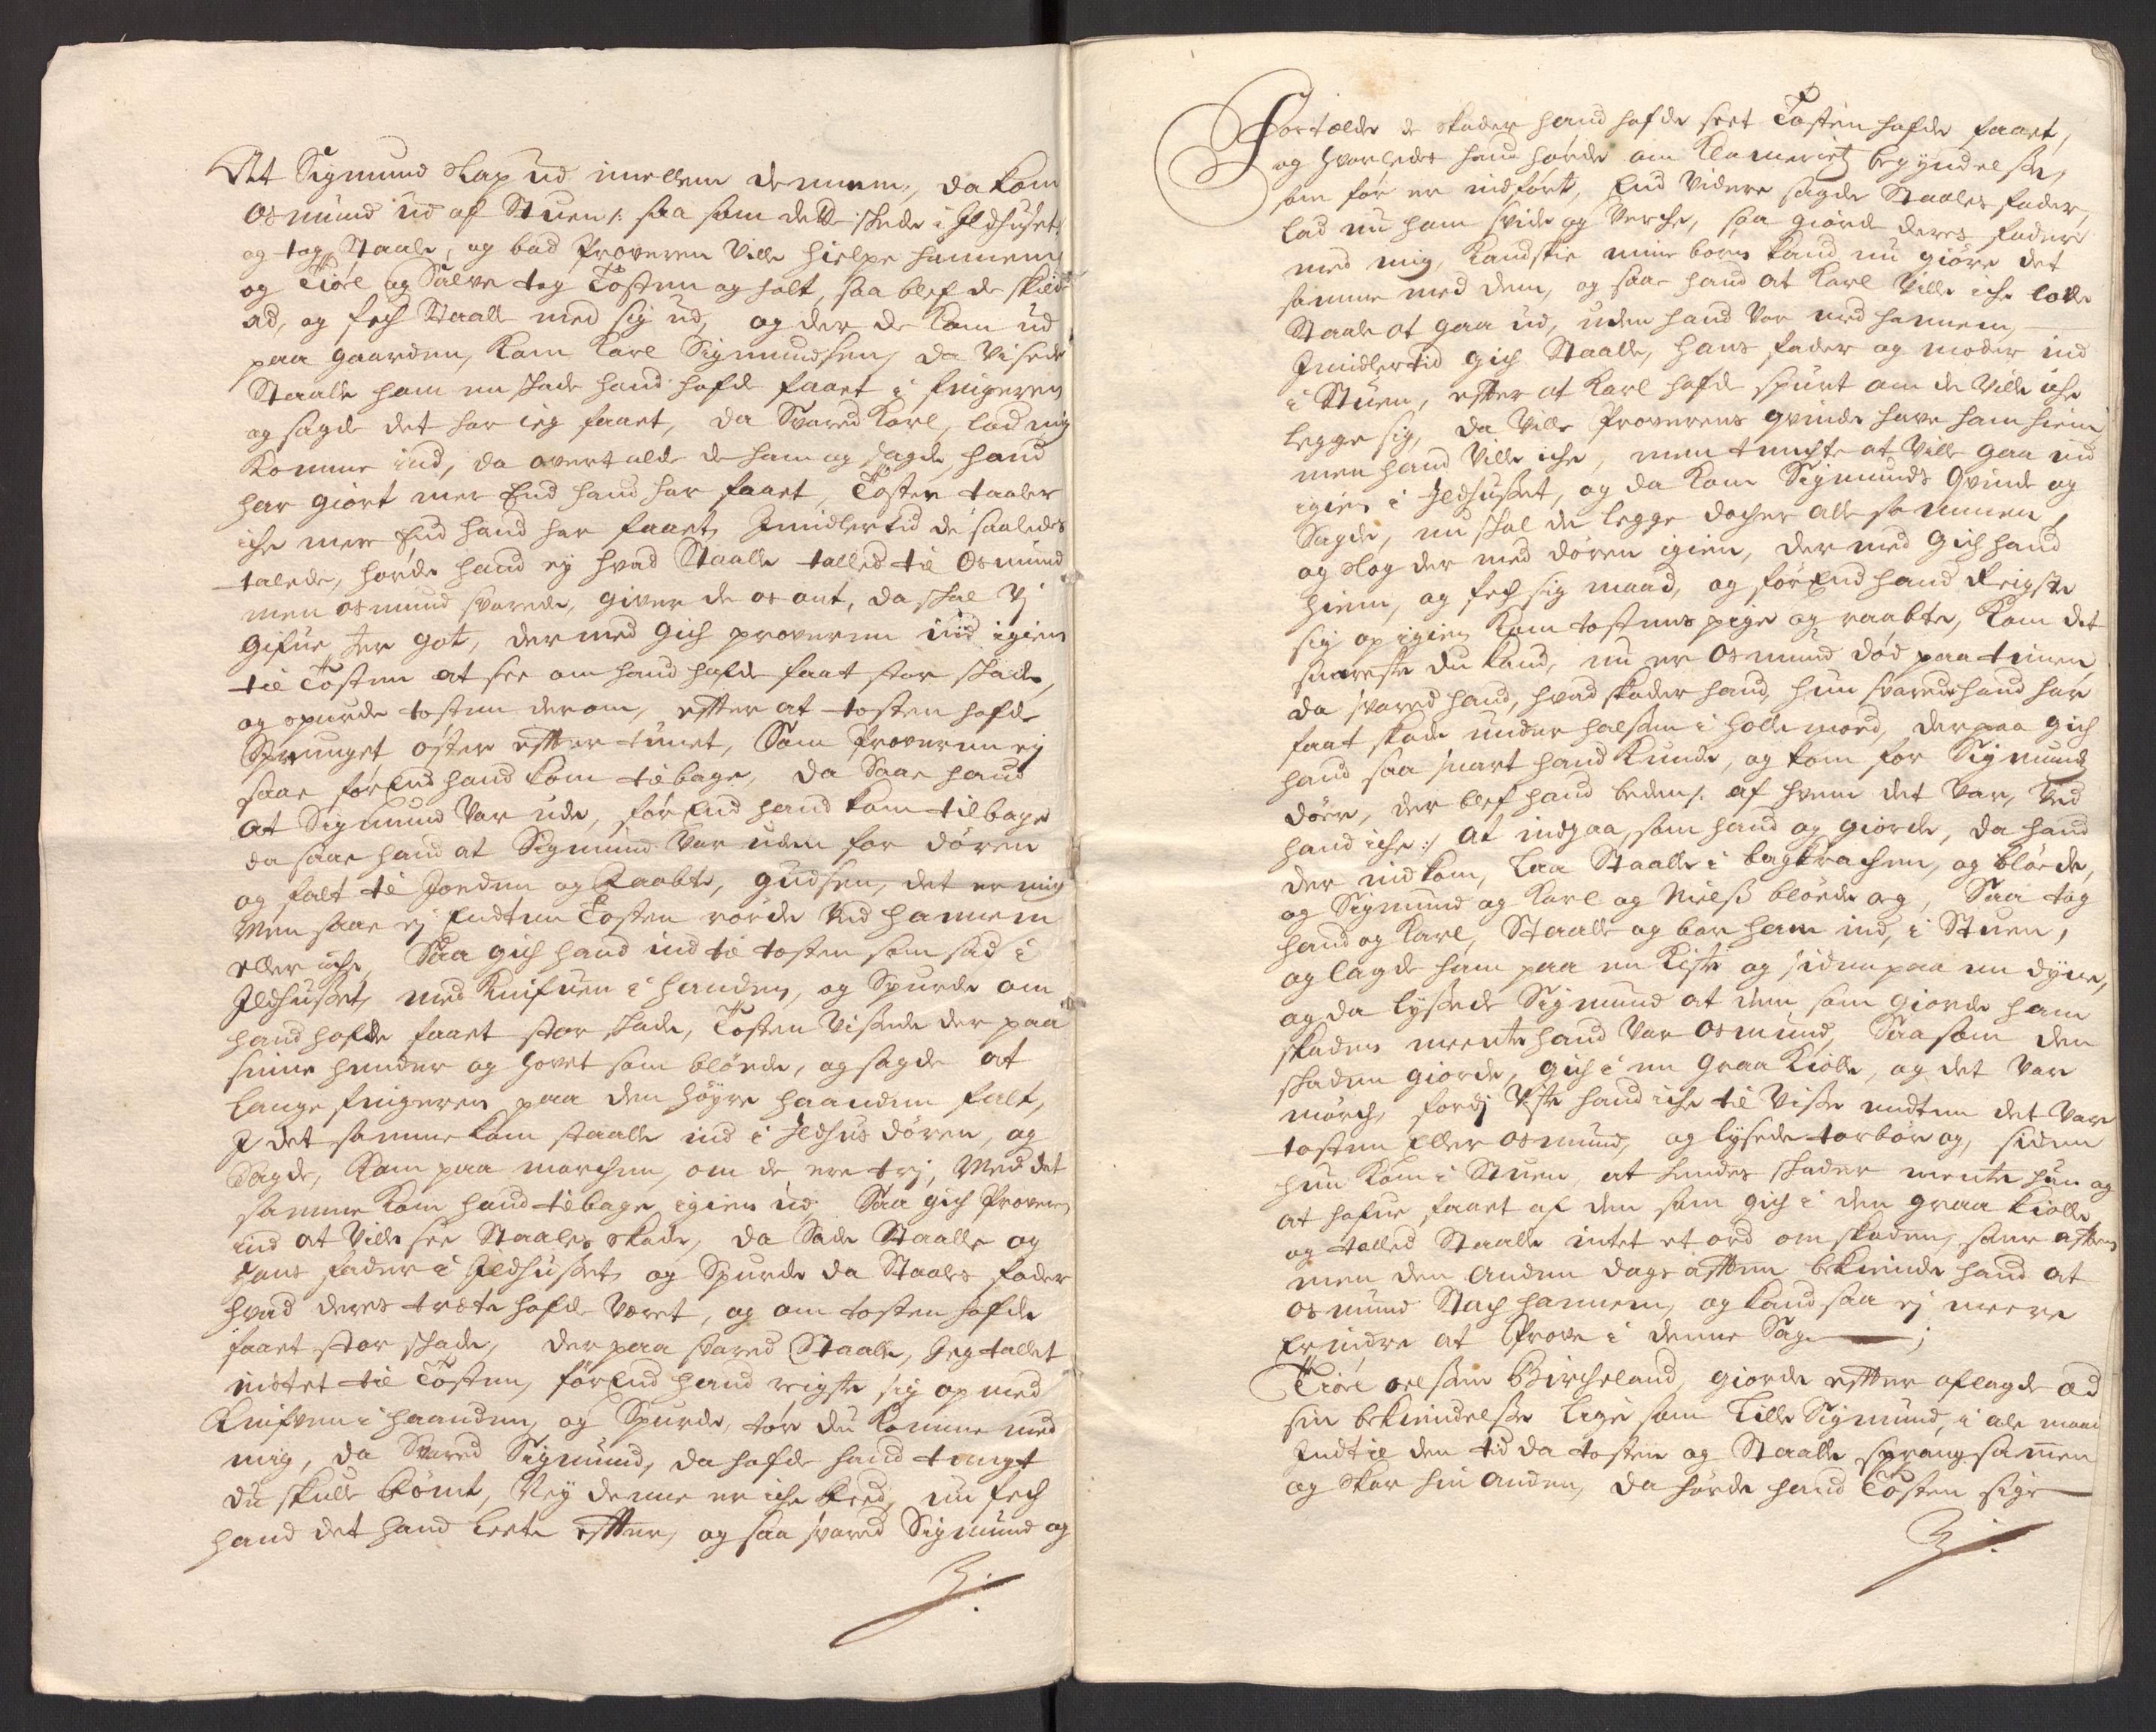 At Sigmund slap ud imellem dennem, da kom
Osmund ud af Stuen /: saa som dette skede i Ildhuset
og tog Staale, og bad Proveren ville hielpe hannem
og Tiøl og Salve tog Tosten og holt, saa blef de skild
ad, og fech Staale med sig ud, og der de kom ud
paa gaarden, kom Karl Sigmundsen, da visede
Staale ham en skade hand hafde faaet i fingeren
og sagde det har ieg faaet, da svared Karl, lad mig
komme ind, da overtalde de ham og sagde, hand
har giort mer End hand har faaet, Tosten taaler
iche mere End hand har faaet, Imidlertid de saaledes
talede, hørde hand ej hvad Staalle talled til Osmund
men Osmund svarede, giver de os ont, da skal vj
gifue der got, dermed gich proveren ind igien
til Tosten at see om hand hafde faat stor skade,
og spurde Tosten derom, efter at Tosten hafde
Sprunget øster efter tunet, Som Proveren ej
saae førEnd hand kom tilbage, da Saae hand
at Sigmund var ude, førEnd hand kom tilbage
da saae hand at Sigmund var uden for døren
og falt til Jorden og Raabte, gudsen, det er mig
Men saae ej Endten Tosten rørde ved hannem
eller iche, Saa gich hand ind til Tosten som sad i
Ildhuset, med Knifuen i handen, og Spurde om
hand hafde faaet stor skade, Tosten vissede der paa
sinne hender og hovet som blødde, og sagde at
lange fingeren paa den høyre haanden falt,
I det samme kom Staalle ind i Ildhus døren, og
Sagde, kom paa marchen, om de ere trej, Med det
samme kom hand tilbage igien ud, Saa gich Proveren
ind at ville see Staales skade, da Sade Staalle og
hans fader i Ildhuset, og Spurde da Staales fader
hvad deres trætte hafde været, og om Tosten hafde
faaet stor skade, derpaa svared Staalle, Jeg tallet
intet til Tosten, førEnd hand reigste sig op med
Knifven i haanden, og Spurde, tør du komme med
mig, da Svared Sigmund, da hafde hand tengt
du skulle kømt, Nej denne er iche bred, nu fech
hand det hand leete efter, og saa svared Sigmund og
Fortælde de skader hand hafde seet Tosten hafde faaet,
og hvorledes hand hørde om Klameriets begyndelse,
som før er indført, End videre sagde Staales fader,
lad nu ham svide og verche, saa giørde deres fader
med mig, kandskie mine børn kand nu giøre det
samme med dem, og saae hand at Karl ville iche lade
Staale at gaa ud, uden hand var med hannem,
Imidlertid gich Staalle, hans fader og moder ind
i Stuen, efter at Karl hafde spurt om de ville iche
legge sig, da ville Proverens qvinde have ham hiem
men hand ville iche, men tenchte at ville gaa ind
igien i Ildhuset, og da kom Sigmunds Qvinde og
Sagde, nu skal de legge dachen alle sammen,
og slog der med døren igien, der med gich hand
hiem, og fech sig maad, og førEnd hand Reigste
sig op igien kom Tostens pige og raabte, kom det
snareste du kand, nu er Osmund død paa tunen,
da svared hand, hvad skader hand, hun svarede hand har
faat skade under halsen i hollemord, derpaa gich
hand saa snart hand kunde, og kom for Sigmunds
døer, der blef hand beden /: af hvem det var, ved
hand iche :/ at indgaa, som hand og giorde, da hand
der indkom, laa Staalle i bagkrachen, og blødde,
og Sigmund og Karl og Nielß blødde og, Saa tog
hand og Karl, Staalle og bar ham ind, i Stuen,
og lagde ham paa en kiste og siden paa en dyne,
og da lyssede Sigmund at dem som giorde ham
skaden meente hand var Osmund, Saa som den
skaden giorde, gich i en graa kiolle, og det var
mørch, fordj viste hand iche til visse endten det var
Tosten Eller Osmund, og lysede Torbør og, siden
hun kom i Stuen, at hendes skader mente hun og
at hafue faaet af den som gich i den graa kiolle
og talled Staalle intet et ord om skaden, samme aften
men den Anden dags aften bekiende hand at
Osmund Stach hannem, og kand saa ej meere
Erindre at Prove i denne Sag —;
Tiøl oelsen Bircheland, giorde efter aflagde æd
sin bekiendelse lige som Lille Sigmund, i ale maade
Indtil den tid da Tosten og Staalle sprang samen
og skar hin anden, da hørde hand Tosten sige